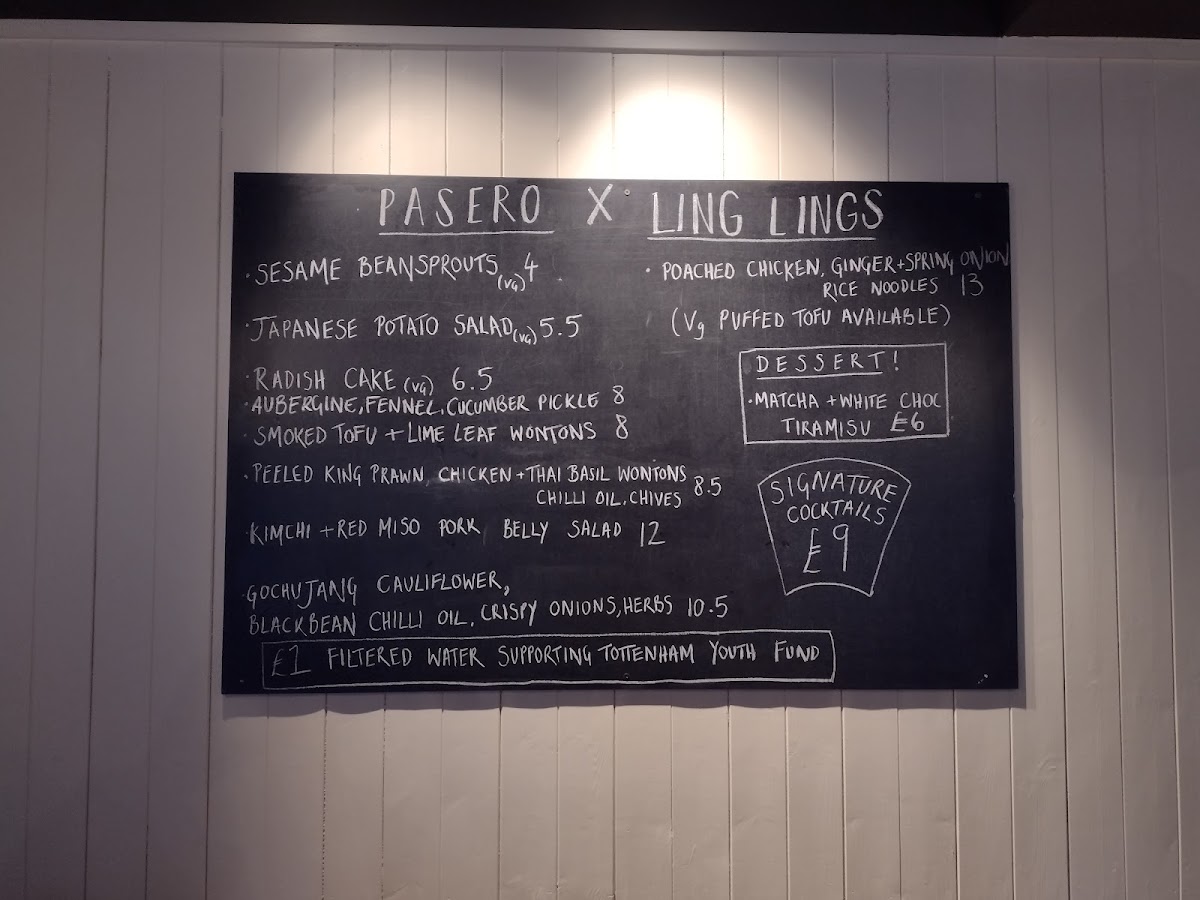 PASERO X LING LINGS
· SESAME BEANSPROUTS (VG) 4
· JAPANESE POTATO SALAD (VG) 5.5
· RADISH CAKE (VG) 6.5
· AUBERGINE, FENNEL, CUCUMBER PICKLE 8
· SMOKED TOFU + LIME LEAF WONTONS 8
· PEELED KING PRAWN, CHICKEN + THAI BASIL WONTONS
CHILLI OIL, CHIVES 8.5
· KIMCHI + RED MISO PORK BELLY SALAD 12
· GOCHUJANG CAULIFLOWER,
BLACKBEAN CHILLI OIL, CRISPY ONIONS, HERBS 10.5
£1 FILTERED WATER SUPPORTING TOTTENHAM YOUTH FUND
· POACHED CHICKEN, GINGER + SPRING ONION
RICE NOODLES 13
(Vg PUFFED TOFU AVAILABLE)
DESSERT!
· MATCHA + WHITE CHOC
TIRAMISU £6
SIGNATURE
COCKTAILS
£9